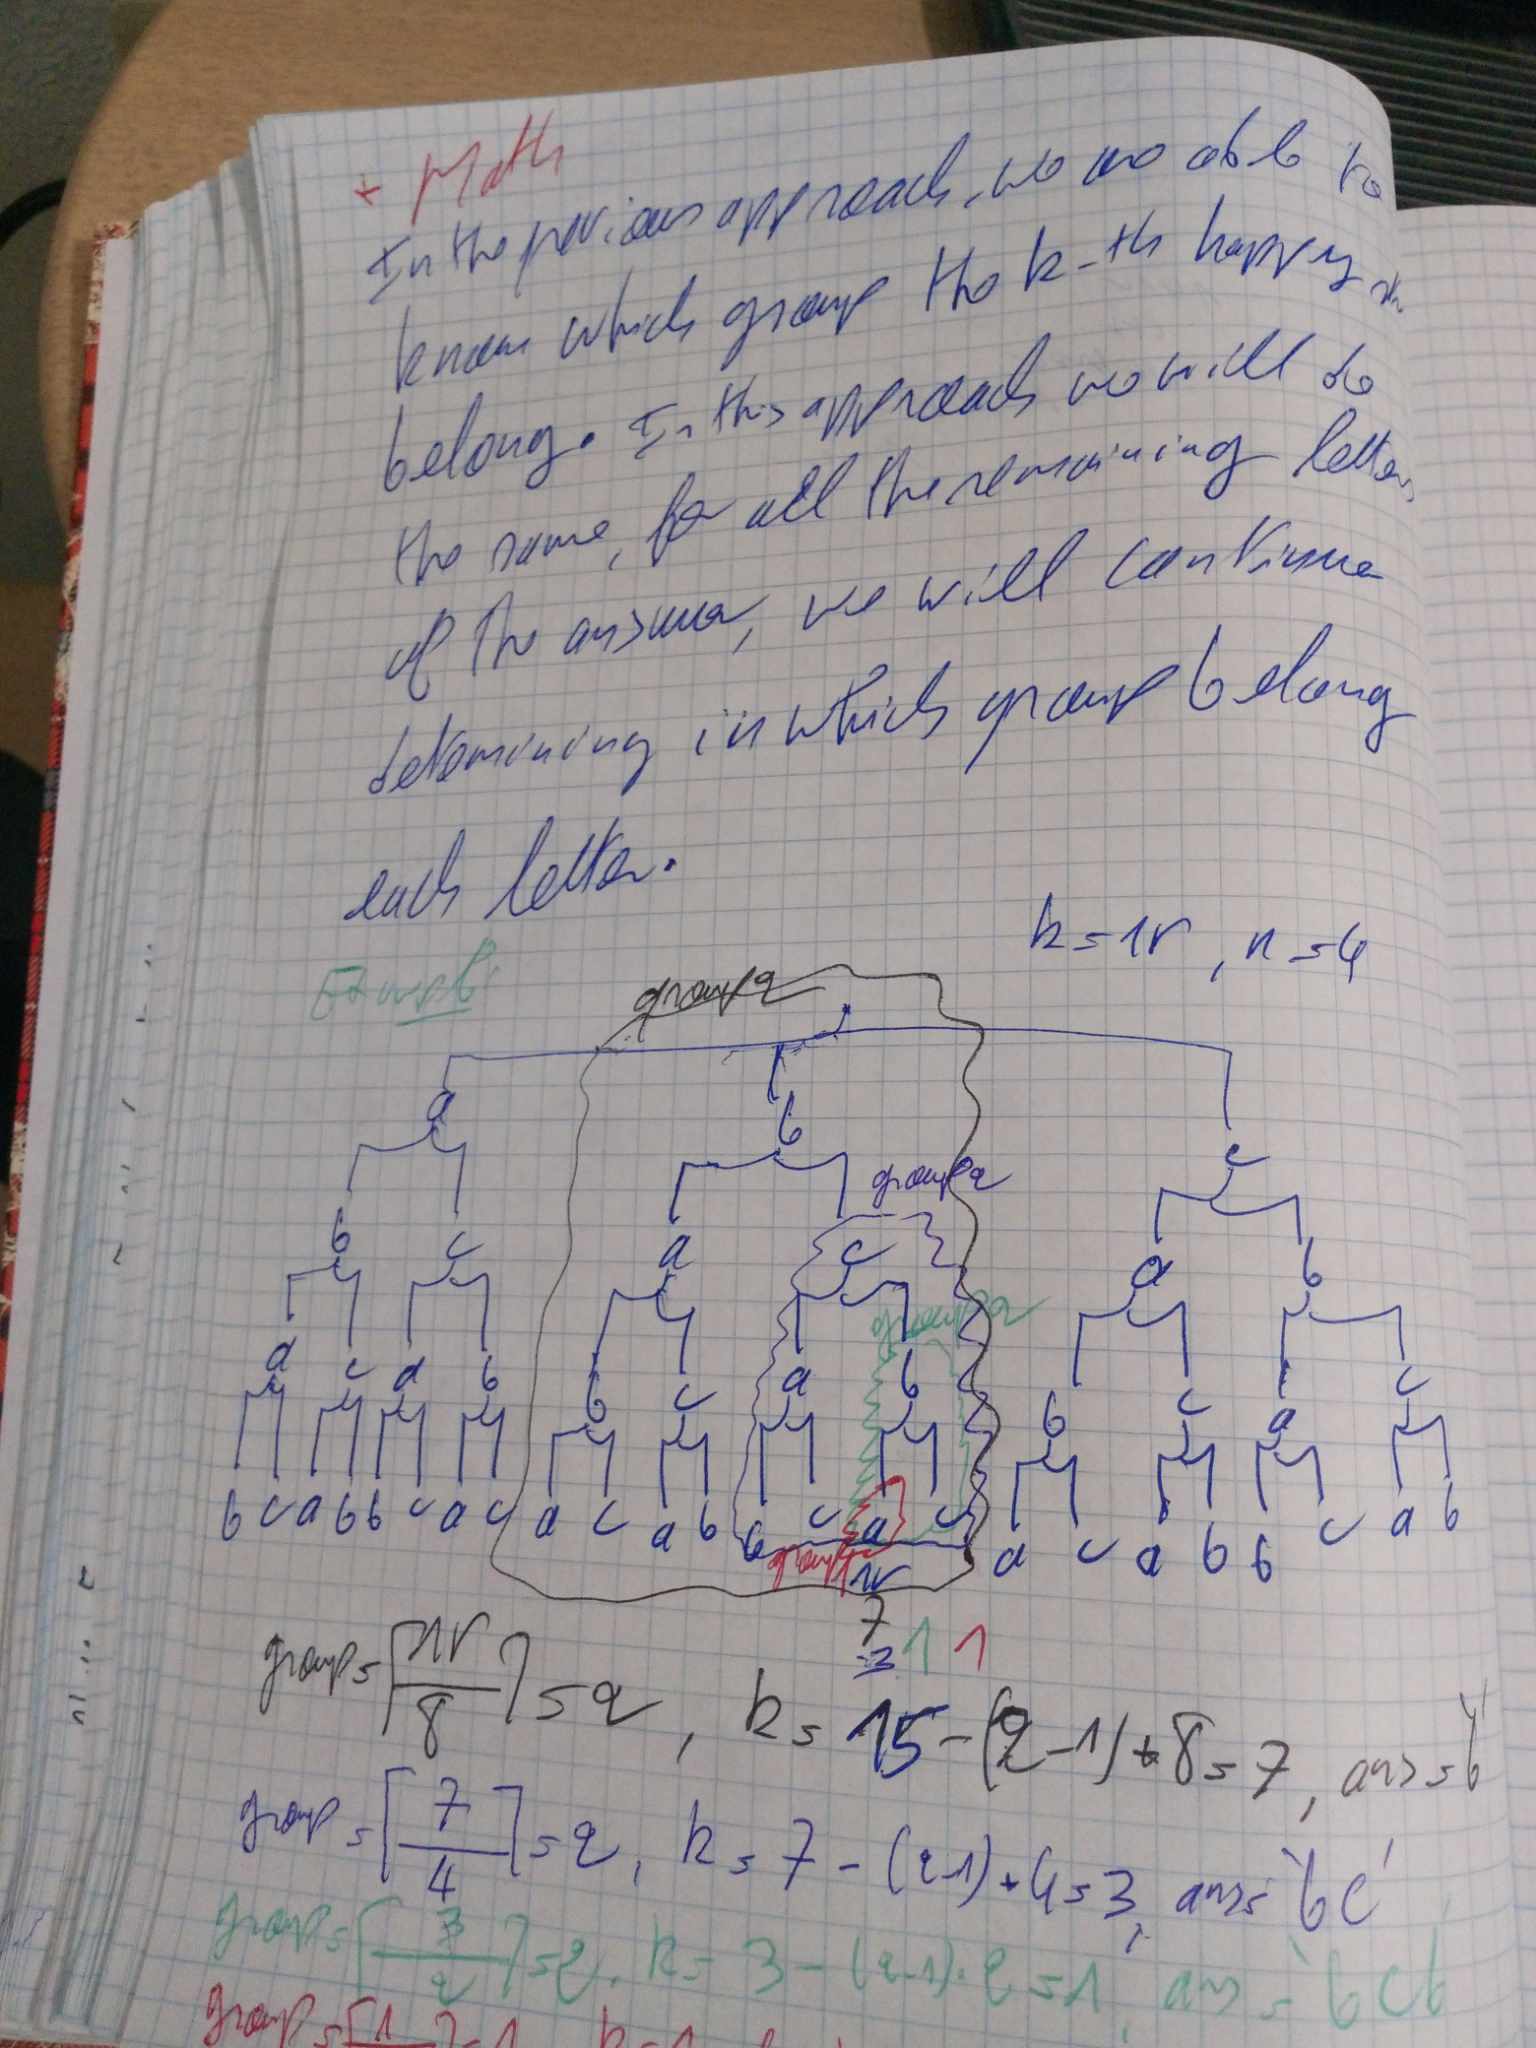 * Math
In the previous approach, we are able to
know which group the k-th happy
belong. In this approach we will do
the same, for all the remaining letters
of the answer, we will continue
determining in which group belong
each letter.
Example:
k=15, n=4
group 2
a b c
group 2
b c a c a b
group 2
a c a b b c a b b c a c
b c a b b c a c a c a b b c a c a c a b b c a b
group 1
15
7
3 1 1
group = ⌈15/8⌉ = 2, k = 15 - (2-1) * 8 = 7, ans = 'b'
group = ⌈7/4⌉ = 2, k = 7 - (2-1) * 4 = 3, ans = 'bc'
group = ⌈3/2⌉ = 2, k = 3 - (2-1) * 2 = 1, ans = 'bcb
group = ⌈1